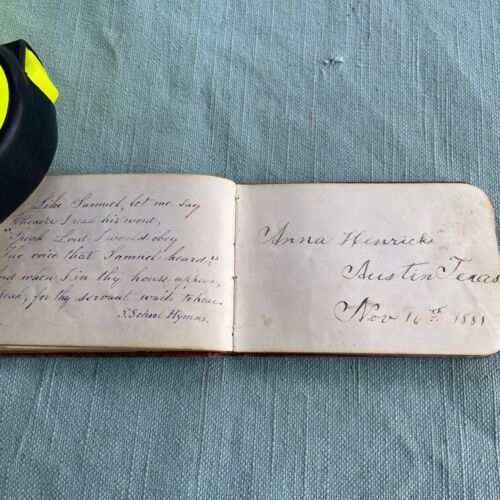 Like Samuel, let me say
I read his word,
"Speak Lord I would obey
voice that Samuel heard;"
And when I in thy house appear,
Speak, for thy servant waits to hear.
S. School Hymns.
Anna Henricks
Austin Texas
Nov 16th 1881